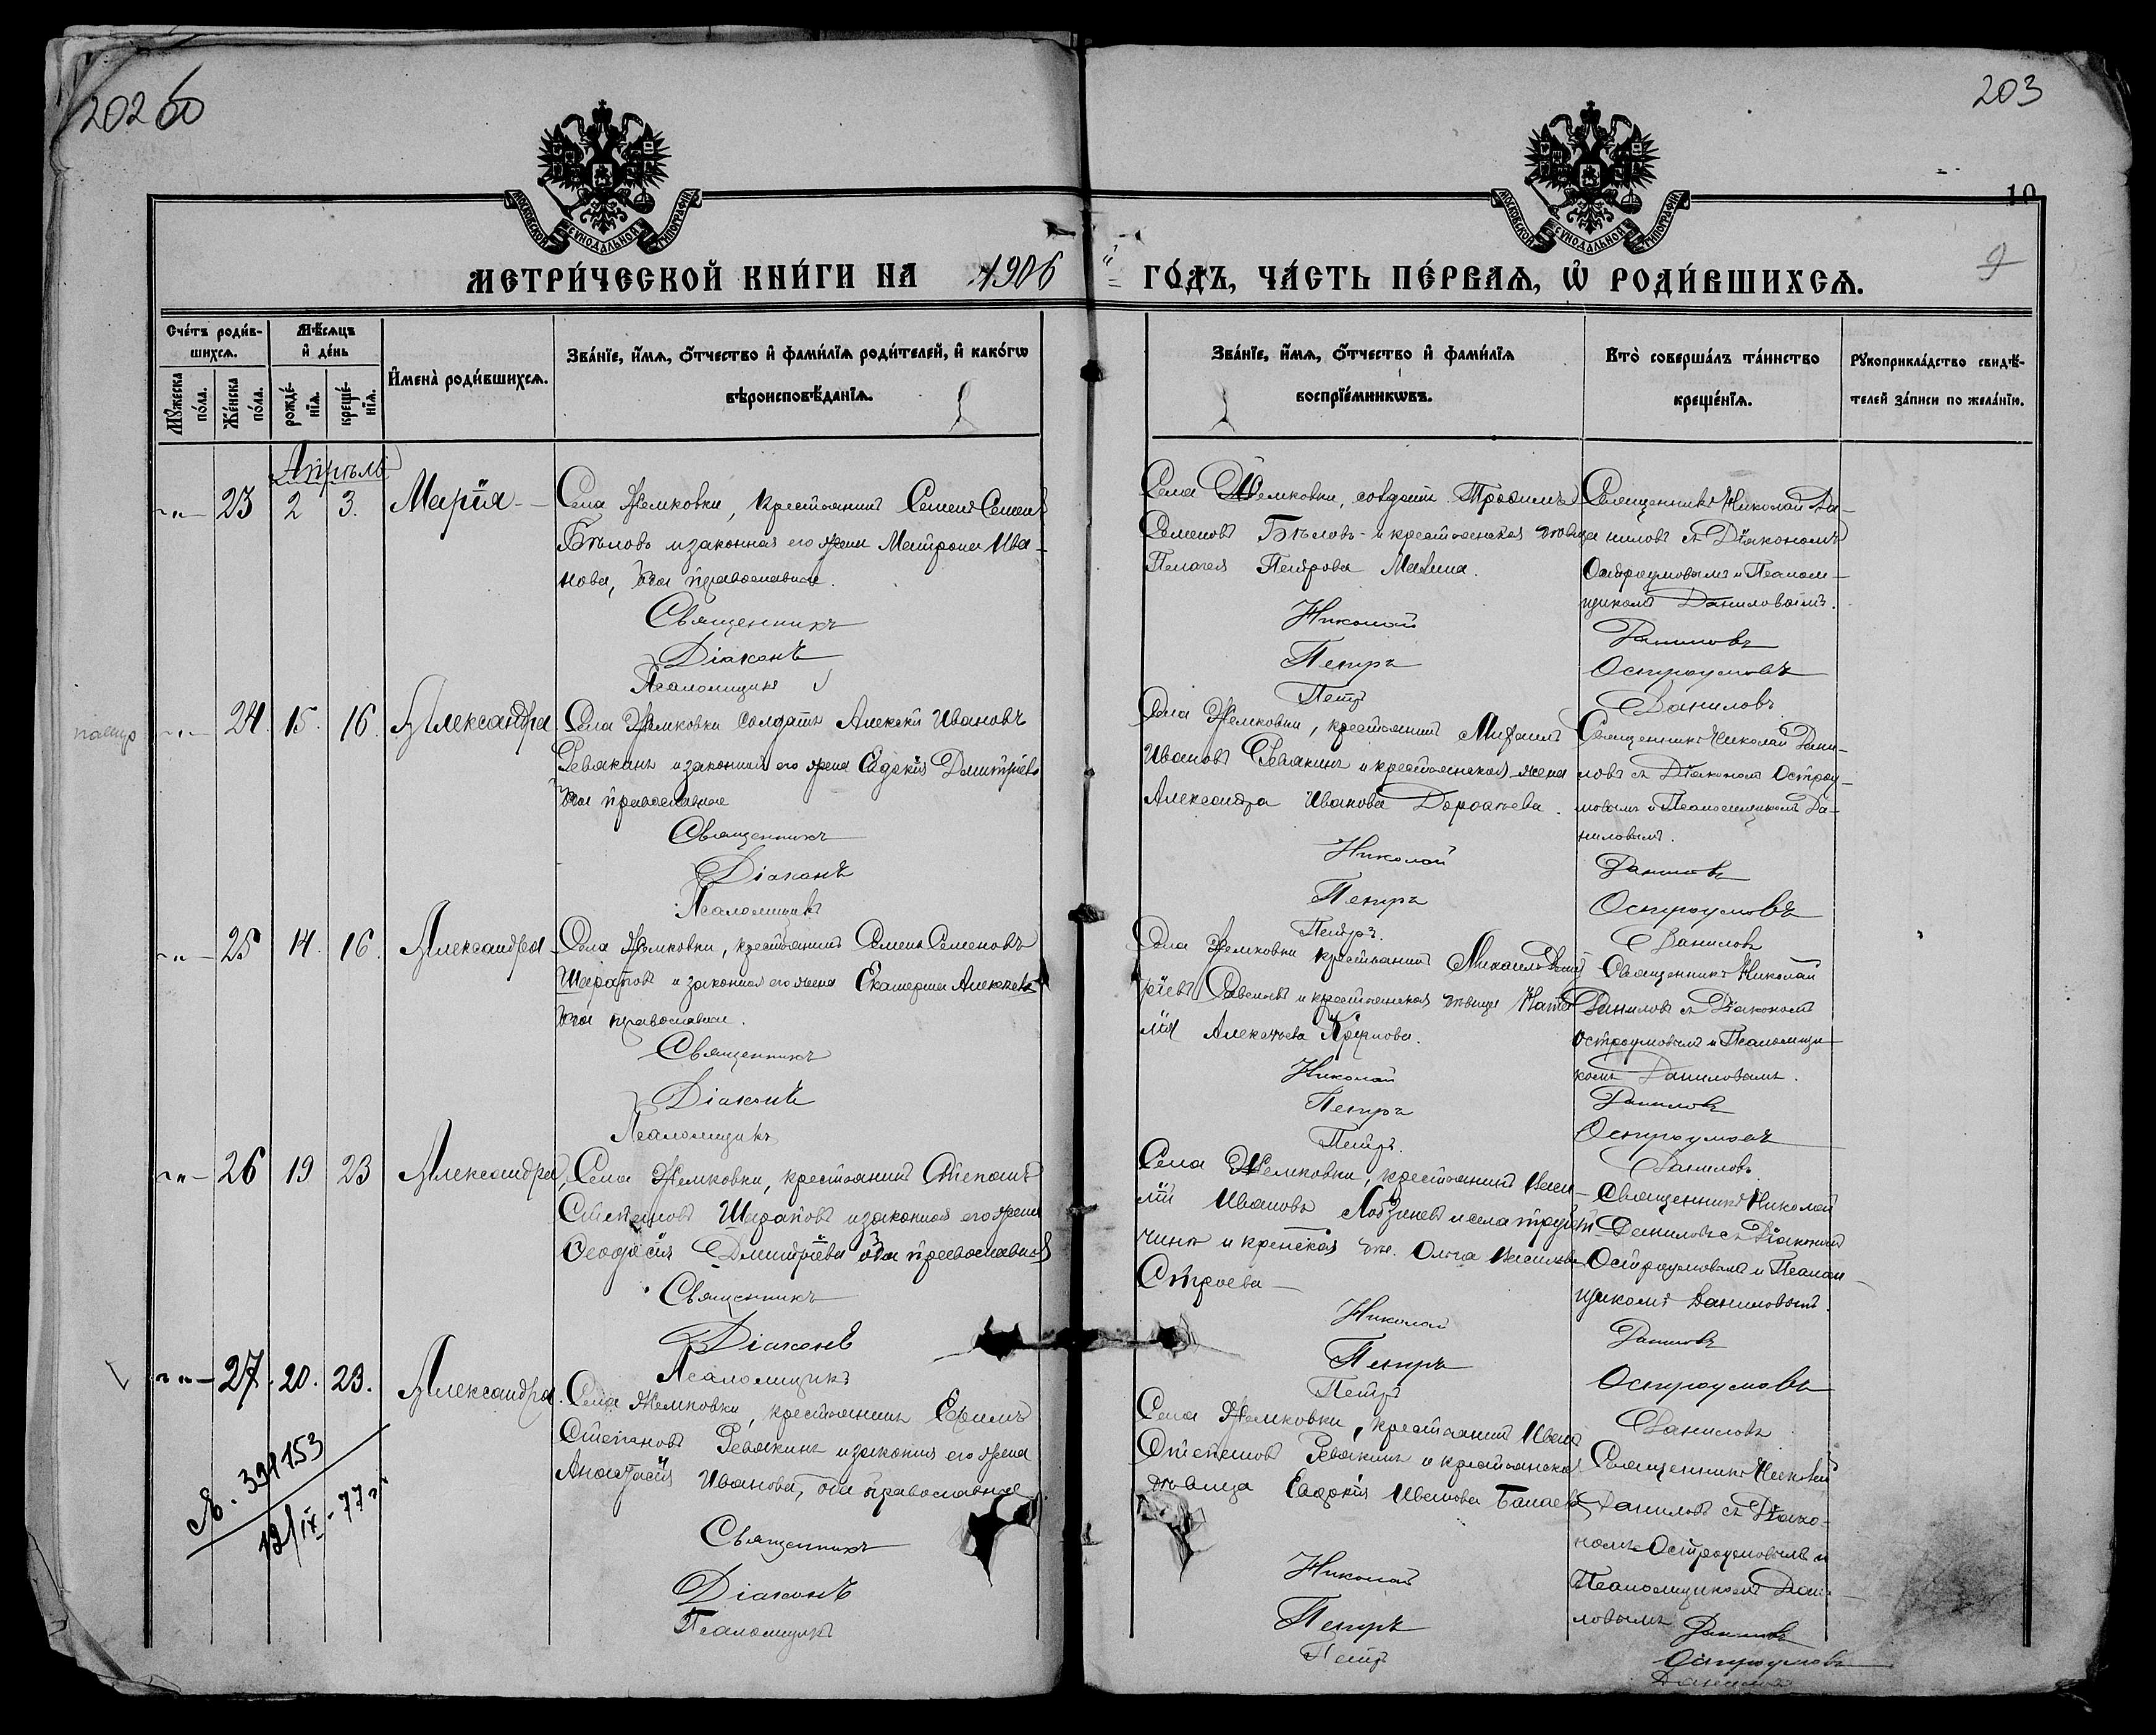 202 об
203
10
9
МОСКОВСКОЙ СѴНОДАЛЬНОЙ ТИПОГРАФІИ
МОСКОВСКОЙ СѴНОДАЛЬНОЙ ТИПОГРАФІИ
МЕТРИ́ЧЕСКОЙ КНИ́ГИ НА 1906 ГО́ДЪ, ЧА́СТЬ ПЕ́РВАѦ, Ѡ҆ РОДИ́ВШИХСѦ.
Сче́тъ роди́в-
шихсѧ.
Мѣ́сѧцъ
и҆ де́нь
Мꙋ́жеска по́ла.
Же́нска по́ла.
рожде́-
нїѧ.
креще́-
нїѧ.
И҆мена̀ роди́вшихсѧ.
Зва́нїе, и҆́мѧ, ѻ҆́тчество и҆ фами́лїѧ роди́телей, и҆ како́гѡ
вѣроисповѣ́данїѧ.
Зва́нїе, и҆́мѧ, ѻ҆́тчество и҆ фами́лїѧ
воспрїе́мникѡвъ.
Кто̀ соверша́лъ та́инство
креще́нїѧ.
Рꙋкоприкла́дство свидѣ́-
телей за́писи по жела́нїю.
Апрѣль
23 2 3. Марія
Села Жемковки, крестьянинъ Семенъ Семенов
Бѣловъ и законная его жена Матрона Ива-
нова, оба православные.
Священникъ
Діаконъ
Псаломщикъ
Села Жемковки, солдатъ Трофимъ
Семеновъ Бѣловъ и крестьянская дѣвица
Пелагея Петрова Малина.
Николай
Петръ
Петръ
Священникъ Николай Да-
ниловъ съ Діакономъ
Остроумовымъ и Псалом-
щикомъ Даниловымъ.
Даниловъ
Остроумовъ
Даниловъ
24. 15. 16. Александра
Села Жемковки солдатъ Алексѣй Ивановъ
Ревякинъ и законная его жена Евдокія Дмитріева
оба православные
Священникъ
Діаконъ
Псаломщикъ
Села Жемковки, крестьянинъ Михаилъ
Ивановъ Ревякинъ и крестьянская жена
Александра Иванова Дорофеева.
Николай
Петръ
Петръ.
Священникъ Николай Дани-
ловъ съ Діакономъ Остроу-
мовымъ и Псаломщикомъ Да-
ниловымъ.
Даниловъ
Остроумовъ
Даниловъ
25 14. 16. Александра
Села Жемковки, крестьянинъ Семенъ Семеновъ
Шараповъ и законная его жена Екатерина Алексѣева
оба православные.
Священникъ
Діаконъ
Псаломщикъ
Села Жемковки крестьянинъ Михаилъ Дмит
ріевъ Савельевъ и крестьянская дѣвица Ната
лія Алексѣева
Николай
Петръ
Петръ.
Священникъ Николай
Даниловъ съ Діакономъ
Остроумовымъ и Псаломщи-
комъ Даниловымъ.
Даниловъ
Остроумовъ
Даниловъ
26 19 23 Александра
Села Жемковки, крестьянинъ Степанъ
Степановъ Шараповъ и законная его жена
Ѳеодосія Дмитріева оба православные
Священникъ
Діаконъ
Псаломщикъ
Села Жемковки, крестьянинъ Васи-
лій Ивановъ и села
Ольга Васильева
Строева
Николай
Петръ
Петръ
Священникъ Николай
Даниловъ съ Діакономъ
Остроумовымъ и Псалом-
щикомъ Даниловымъ.
Даниловъ
Остроумовъ
Даниловъ
27. 20. 23. Александра
Села Жемковки, крестьянинъ Ефимъ
Степановъ Ревякинъ и законная его жена
Анастасія Иванова, оба православные.
Священникъ
Діаконъ
Псаломщикъ
Села Жемковки, крестьянинъ Иванъ
Степановъ Ревякинъ и крестьянская
дѣвица Евдокія Иванова
Николай
Петръ
Петръ
Священникъ Николай
Даниловъ съ Діако-
номъ Остроумовымъ и
Псаломщикомъ Дани-
ловымъ
Даниловъ
Остроумовъ
Даниловъ
№. 391153
12/IX - 77 г.